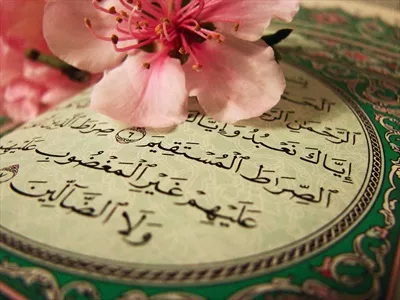 الرَّحْمَٰنِ
إِيَّاكَ نَعْبُدُ وَإِيَّاكَ
الصِّرَاطَ الْمُسْتَقِيمَ ۝٦ صِرَاطَ الَّذِينَ
عَلَيْهِمْ غَيْرِ الْمَغْضُوبِ عَلَيْهِمْ
وَلَا الضَّالِّينَ